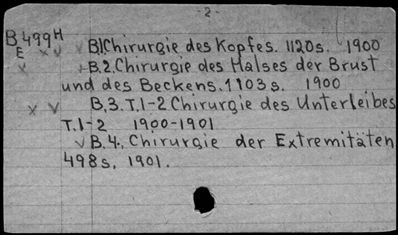 - 2 -
B 499H
E
B.1. Chirurgie des Kopfes. 1120s. 1900
B.2. Chirurgie des Halses der Brust
und des Beckens. 1103s. 1900
B.3. T.1-2 Chirurgie des Unterleibes
T.1-2 1900-1901
B.4. Chirurgie der Extremitäten
498s. 1901.